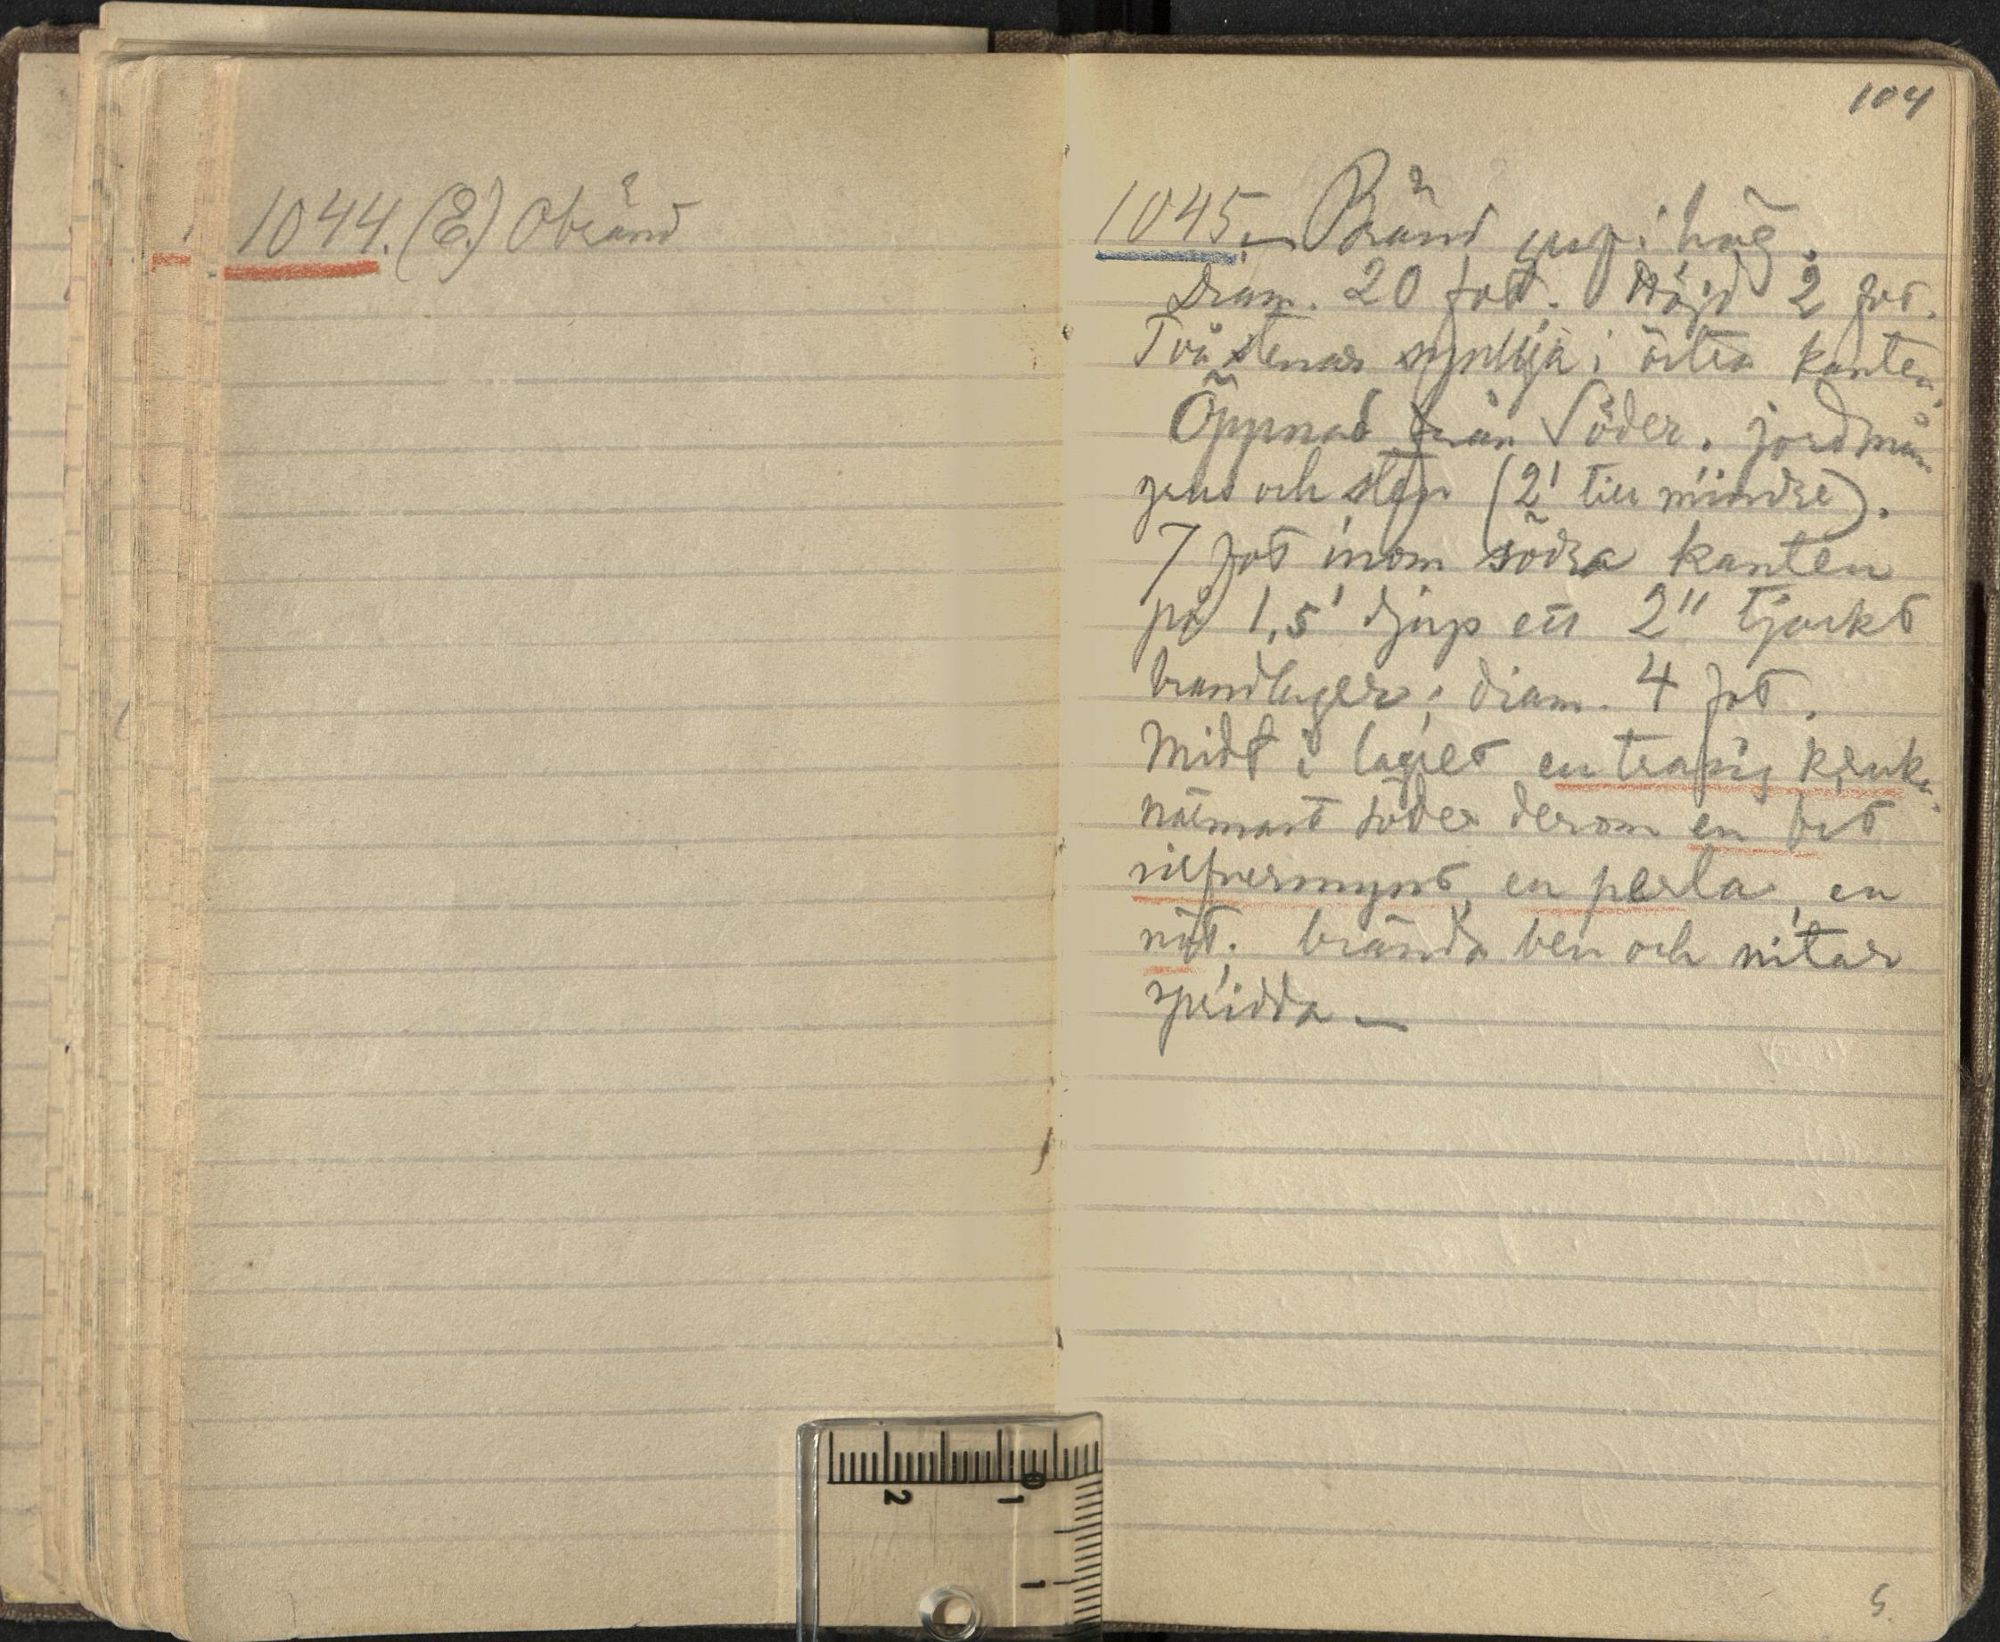 1044. (E.) Obränd
104
1045. – Bränd grop i hög.
Diam. 20 fot. Höjd 2 fot.
Två stenar synliga i östra kanten.
Öppnad från Söder. jordmån
grus och sten (2' till mindre).
7 fot inom södra kanten
på 1,5' djup ett 2" tjockt
brandlager; diam. 4 fot.
Midt i lagret en trasig kruka.
närmast söder derom en bit
silfvermynt, en perla, en
nit; brända ben och nitar
spridda –
5.
2 1 0
1